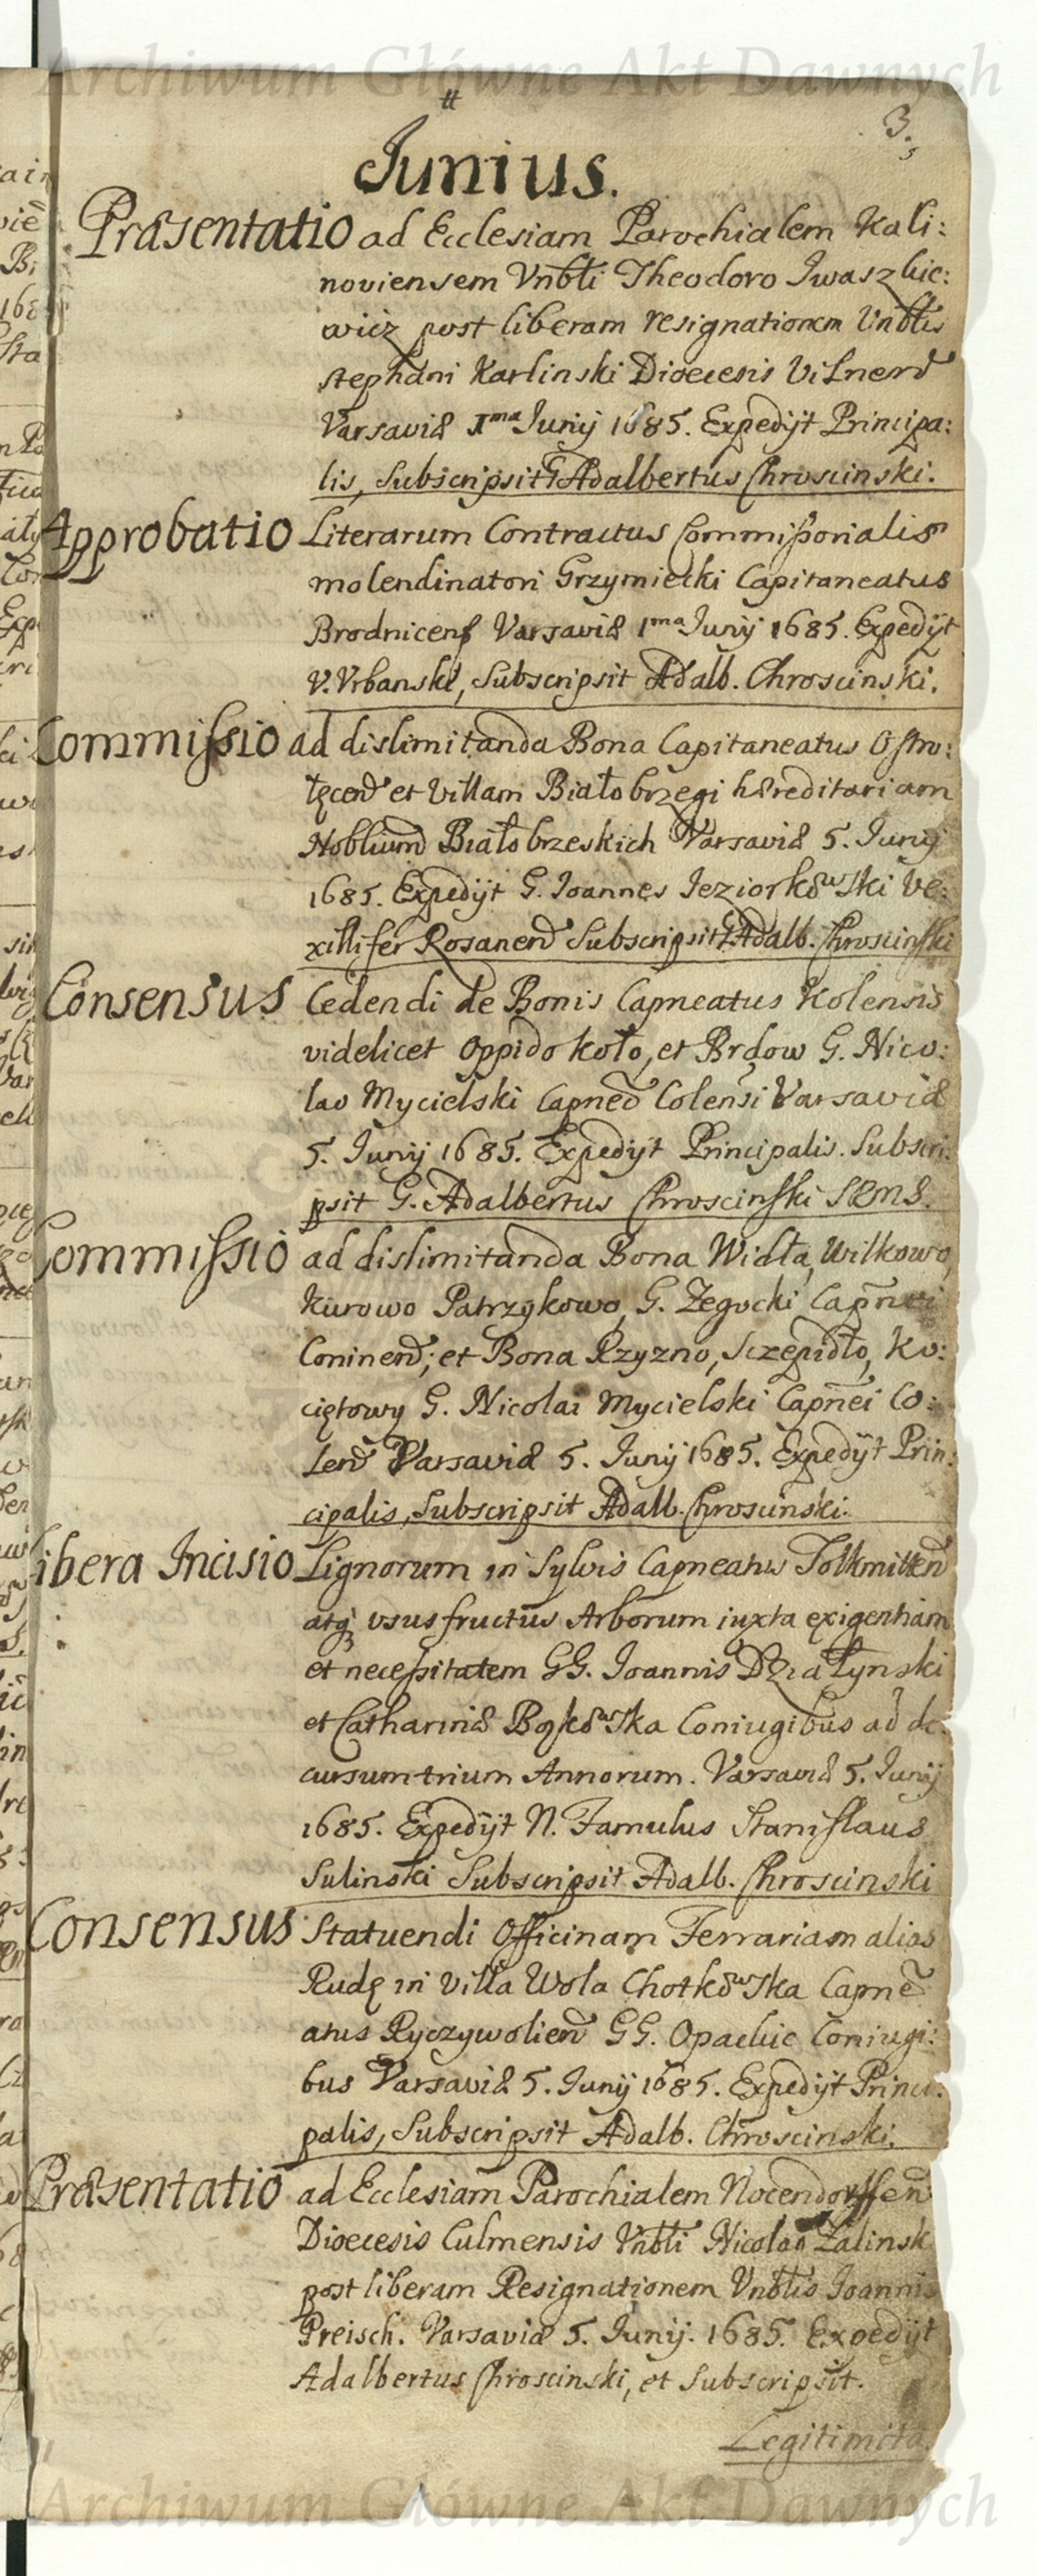 Archiwum Główne Akt Dawnych
3.
Junius.
Præsentatio ad Ecclesiam Parochialem Kali:
noviensem Vnbłi Theodoro Iwaszkie:
wicz post liberam resignationem Vnblis
stephani Karlinski Dioecesis Vilnen
Varsaviæ 1ma Junij 1685. Expedijt Principa:
lis, Subscripsit G Adalbertus Chroscinski.
Approbatio Literarum Contractus Commissorialis
molendinatori Grzymiecki Capitaneatus
Brodnicens Varsaviæ 1ma Junij 1685. Expedijt
V. Vrbanski, Subscripsit Adalb. Chroscinski.
Commissio ad dislimitanda Bona Capitaneatus Ostro:
łęcen et Villam Białobrzegi hæreditariam
Noblium Białobrzeskich Varsaviæ 5. Junij
1685. Expedijt G. Joannes Jeziorkowski Ve:
xillifer Rosanen Subscripsit G Adalb. Chroscinski
Consensus Cedendi de Bonis Capneatus Kolensis
videlicet Oppido Koło, et Brdow G. Nico:
lao Mycielski Capneo Colensi Varsaviæ
5. Junij 1685. Expedijt Principalis. Subscri:
psit G. Adalbertus Chroscinski SRMS.
Commissio ad dislimitanda Bona Widła, Wilkowo,
Kurowo Patrzykowo, G. Zegocki Capnei
Coninen; et Bona Rzyzno, Sczepidło, Ko:
ciętowy G. Nicolai Mycielski Capnei Co:
len Varsaviæ 5. Junij 1685. Expedijt Prin:
cipalis, Subscripsit Adalb. Chroscinski.
Libera Incisio Lignorum in Sylvis Capneatus Tolkmitten
atq vsusfructus Arborum iuxta exigentiam
et necessitatem GG. Joannis Działynski
et Catharinæ Bąkowska Coniugibus ad de:
cursum trium Annorum. Varsaviæ 5. Junij
1685. Expedijt N. Famulus Stanislaus
Sulinski Subscripsit Adalb. Chroscinski
Consensus Statuendi Officinam Ferrariam alias
Rudę in Villa Wola Chotkowska Capne
atus Ryczywolien GG. Opackie Coniugi:
bus Varsaviæ 5. Junij 1685. Expedijt Princi:
palis, Subscripsit Adalb. Chroscinski.
Præsentatio ad Ecclesiam Parochialem Nocendorffen
Dioecesis Culmensis Vnbłi Nicolao Zalinsk
post liberam Resignationem Vnblis Joannis
Preisch. Varsaviæ 5. Junij. 1685. Expedijt
Adalbertus Chroscinski, et Subscripsit.
Legitimita
Archiwum Główne Akt Dawnych